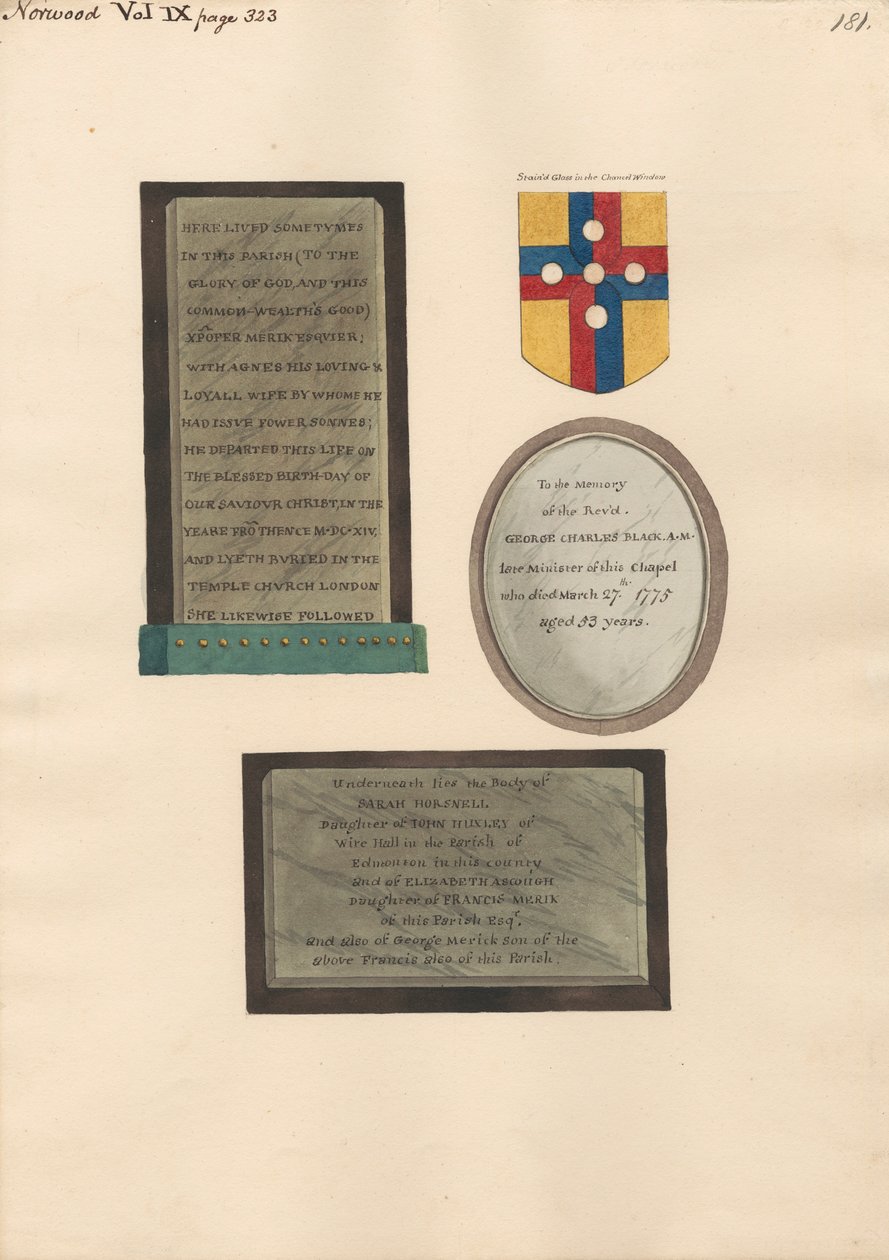 Norwood Vol IX page 323
181.
HERE LIVED SOMETYMES
IN THIS PARISH (TO THE
GLORY OF GOD, AND THIS
COMMON-WEALTH'S GOOD)
XP̃OFER MERIK ESQVIER;
WITH AGNES HIS LOVING &
LOYALL WIFE BY WHOME HE
HAD ISSVE FOWER SONNES;
HE DEPARTED THIS LIFE ON
THE BLESSED BIRTH-DAY OF
OUR SAVIOVR CHRIST, IN THE
YEARE FRÕ THENCE M·DC·XIV,
AND LYETH BVRIED IN THE
TEMPLE CHVRCH LONDON
SHE LIKEWISE FOLLOWED
Stain'd Glass in the Chancel Window
To the Memory
of the Rev'd.
GEORGE CHARLES BLACK. A.M.
late Minister of this Chapel
who died March 27th. 1775
aged 53 years.
Underneath lies the Body of
SARAH HORSNELL
Daughter of JOHN HUXLEY of
Wire Hall in the Parish of
Edmonton in this county
and of ELIZABETH ASCOUGH
Daughter of FRANCIS MERIK
of this Parish Esqr.
and also of George Merick son of the
above Francis also of this Parish.